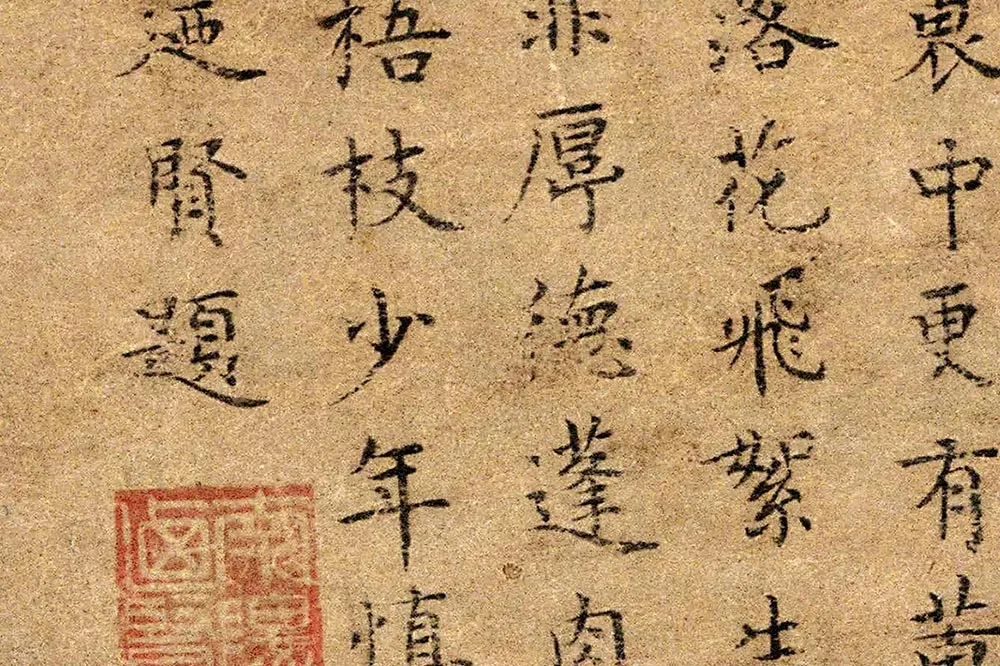 裏中更有黄
落花飛絮生
非厚德蓬肉
梧枝少年慎
迺賢題